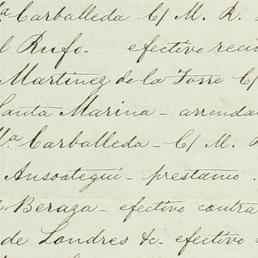 ª Carballeda C/ M. R.
l Rufo. efectivo reci
Martinez de la Torre C/
Santa Marina - arrenda
Mª. Carballeda - C/ M. R
Ansoategui - prestamo.
Beraza - efectivo contra
de Londres &c. efectivo